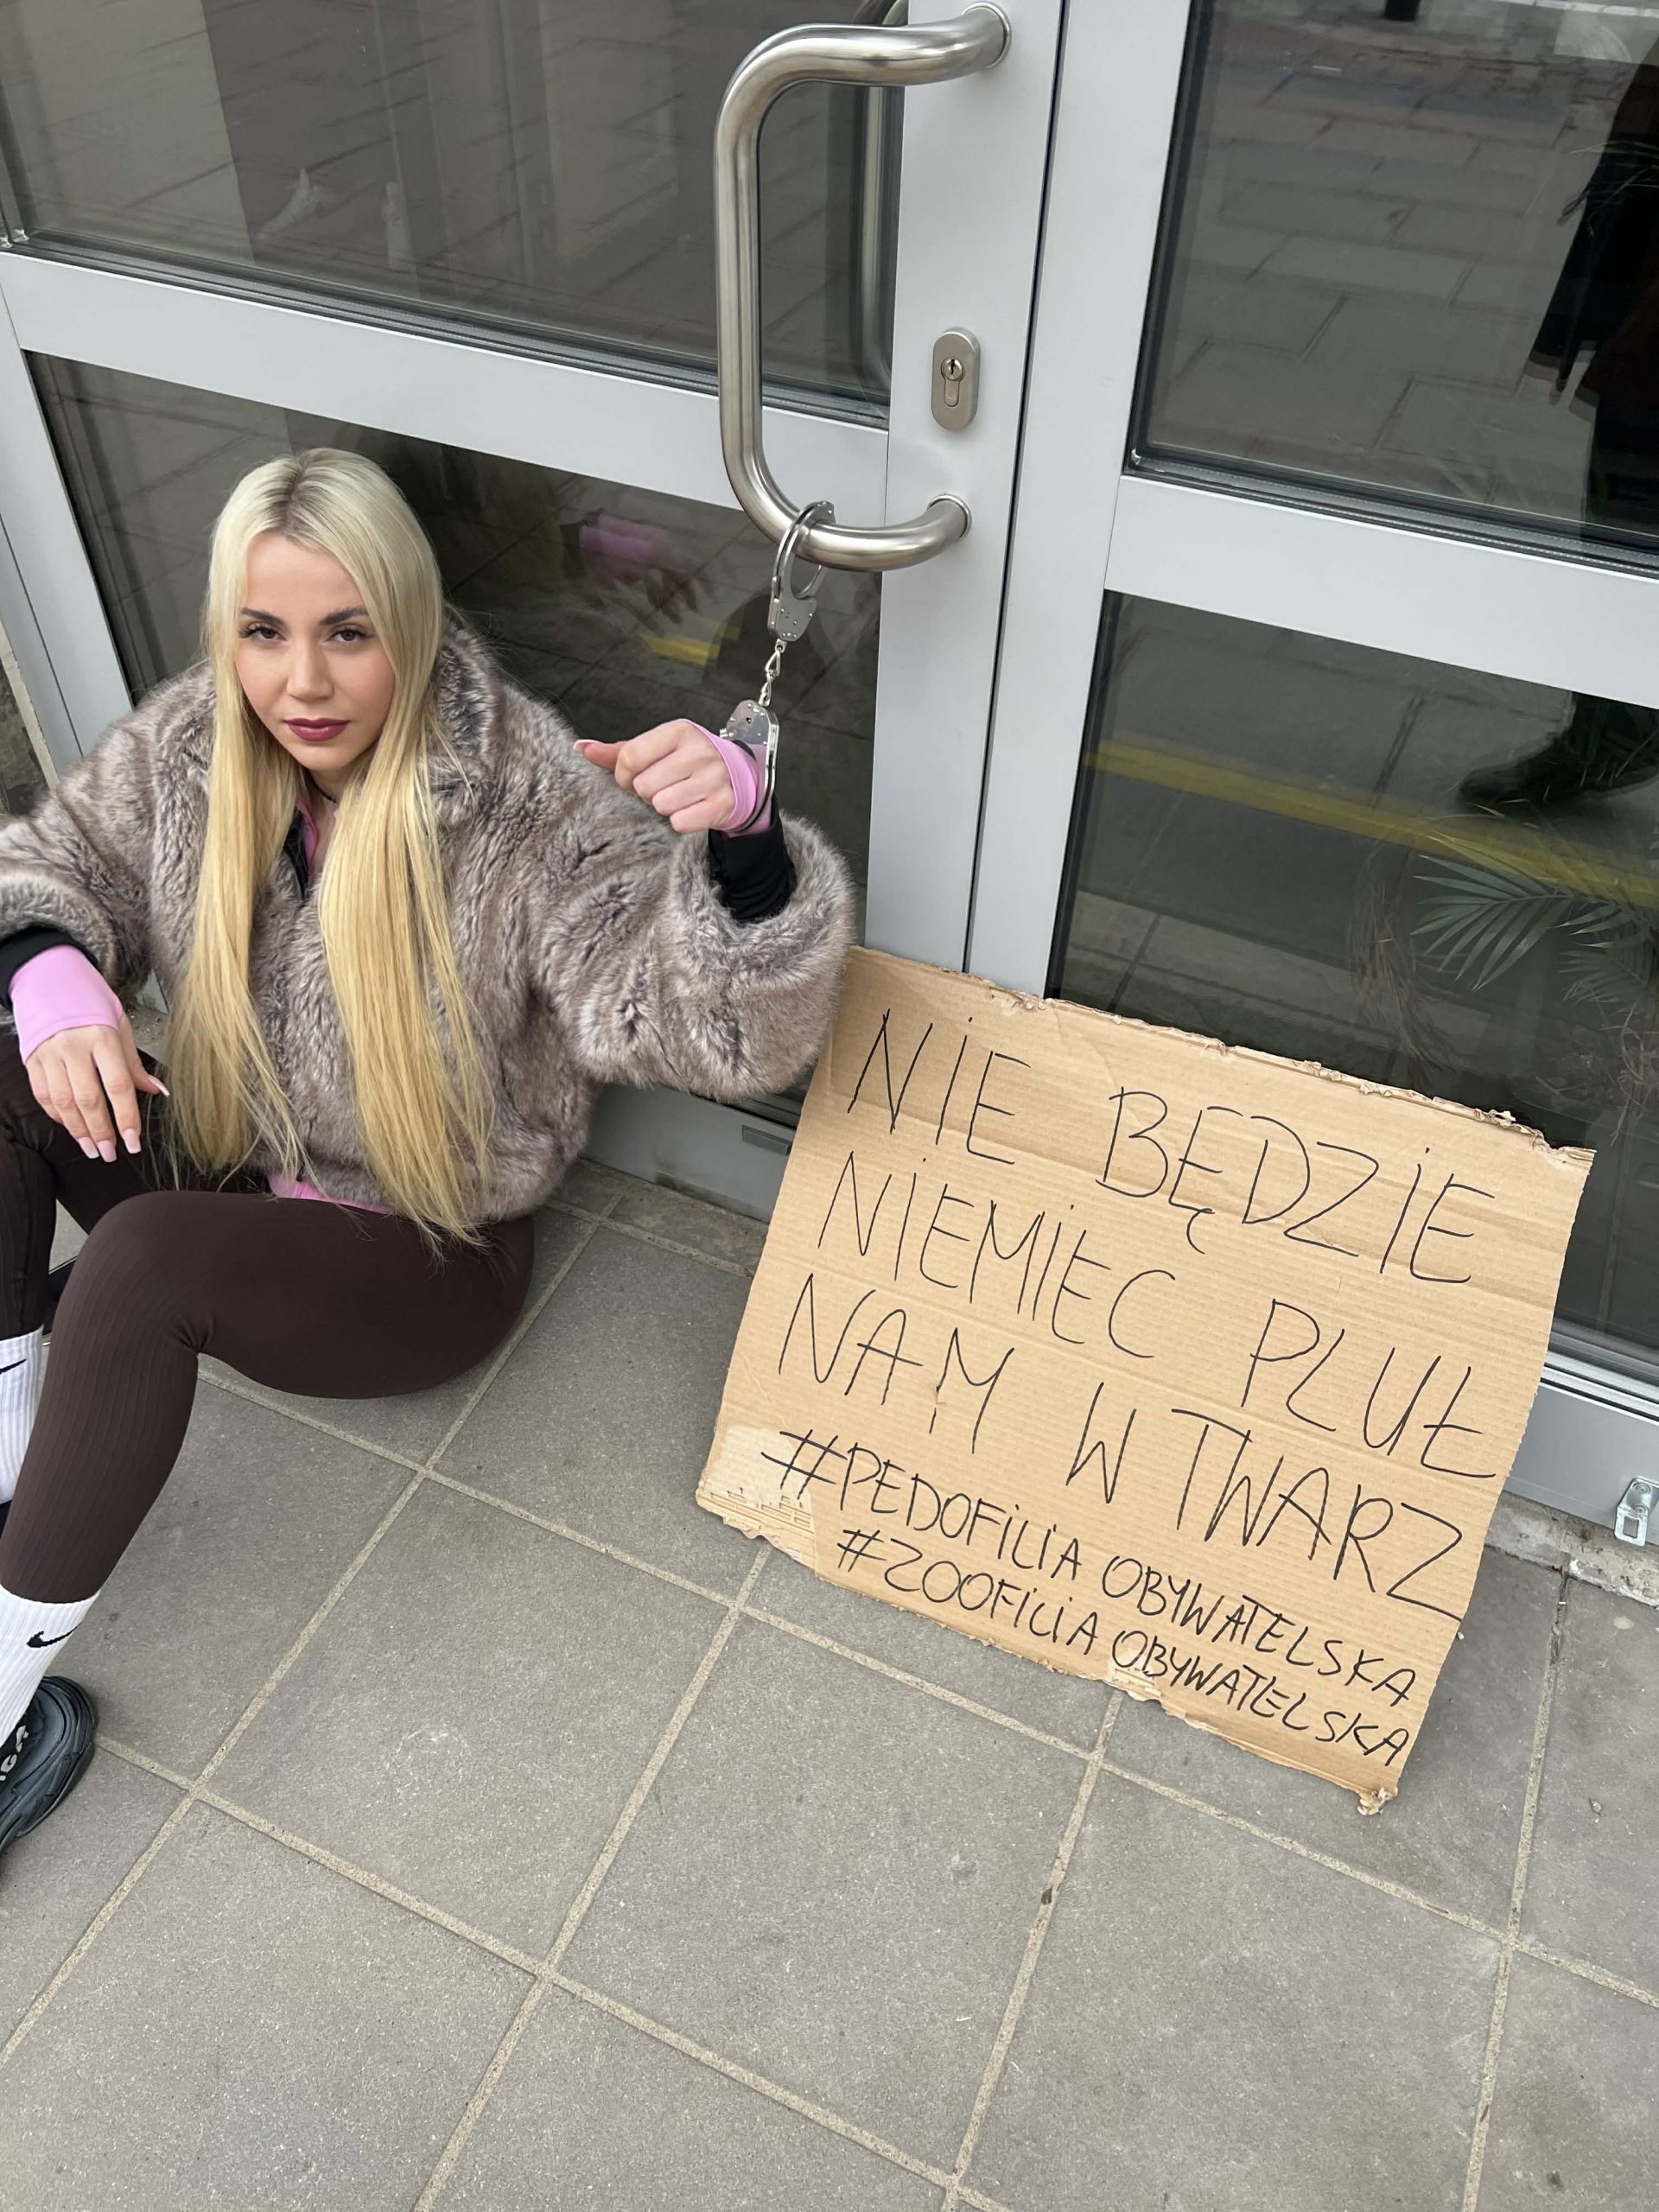 NIE BĘDZIE
NIEMIEC PLUŁ
NAM W TWARZ
#PEDOFILIA OBYWATELSKA
#ZOOFILIA OBYWATELSKA